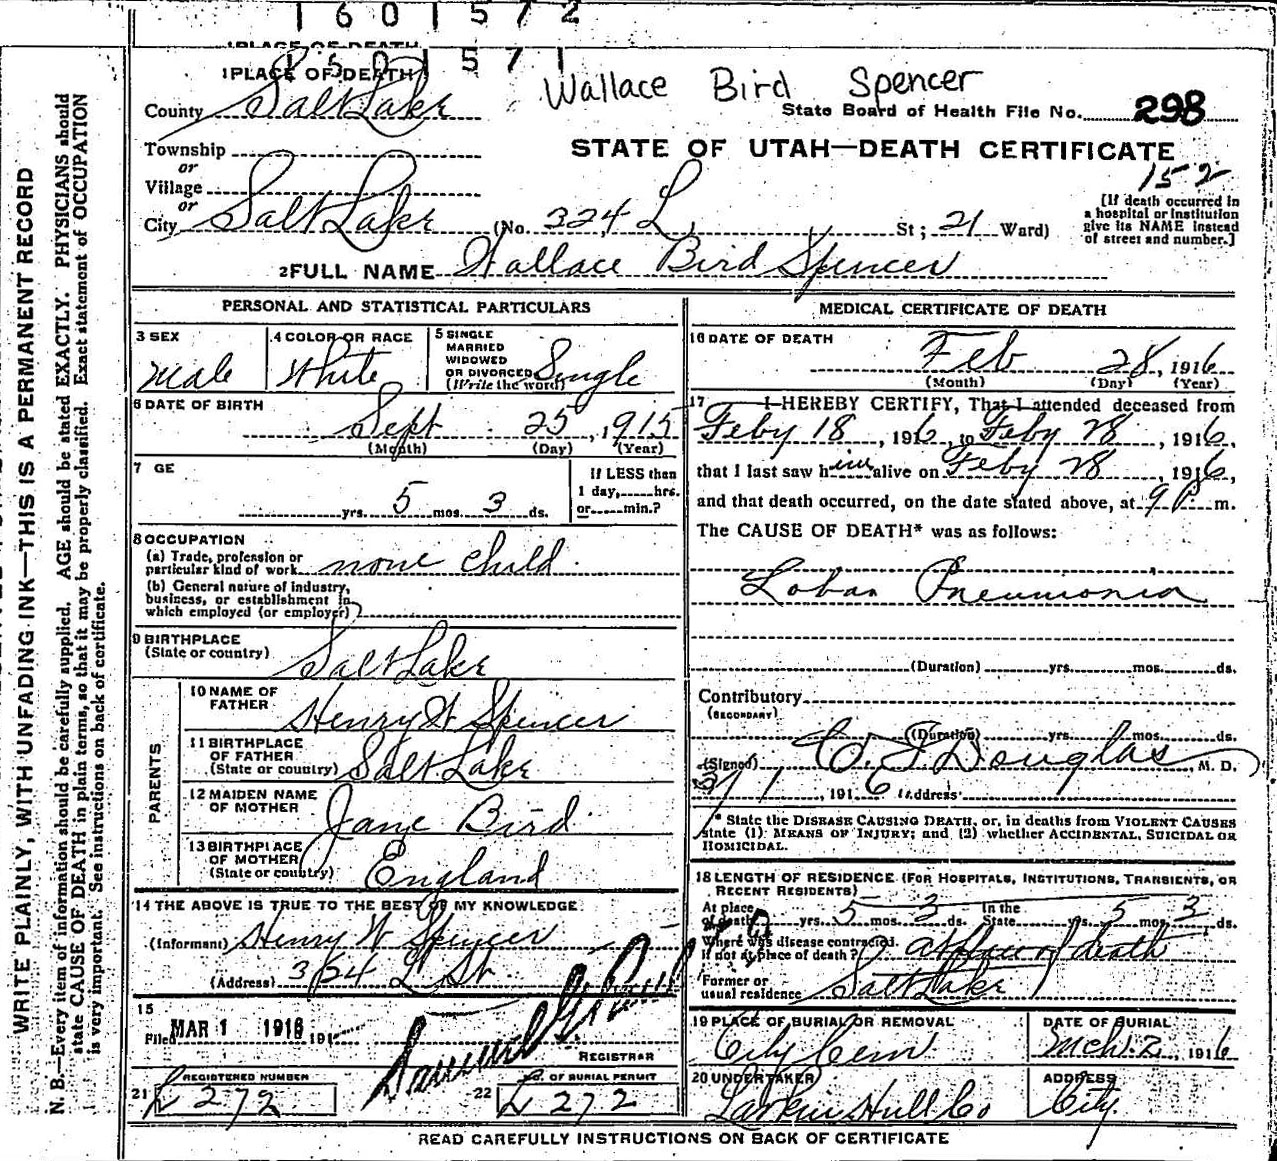 1601572
1 PLACE OF DEATH
1601571
1 PLACE OF DEATH
Wallace Bird Spencer
County Salt Lake
State Board of Health File No. 298
Township
or
Village
or
City Salt Lake (No. 324 L St; 21 Ward)
STATE OF UTAH—DEATH CERTIFICATE
152
[If death occurred in
a hospital or institution
give its NAME instead
of street and number.]
2 FULL NAME Wallace Bird Spencer
PERSONAL AND STATISTICAL PARTICULARS
3 SEX
Male
4 COLOR OR RACE
White
5 SINGLE
MARRIED
WIDOWED
OR DIVORCED
(Write the word)
Single
6 DATE OF BIRTH
Sept 25, 1915
(Month) (Day) (Year)
7 GE
yrs. 5 mos. 3 ds.
If LESS than
1 day, hrs.
or min.?
8 OCCUPATION
(a) Trade, profession or
particular kind of work none child
(b) General nature of industry,
business, or establishment in
which employed (or employer)
9 BIRTHPLACE
(State or country) Salt Lake
PARENTS
10 NAME OF
FATHER Henry W Spencer
11 BIRTHPLACE
OF FATHER
(State or country) Salt Lake
12 MAIDEN NAME
OF MOTHER Jane Bird
13 BIRTHPLACE
OF MOTHER
(State or country) England
14 THE ABOVE IS TRUE TO THE BEST OF MY KNOWLEDGE.
(Informant) Henry W Spencer
(Address) 324 L St
15
Filed MAR 1 1916 191
REGISTRAR
REGISTERED NUMBER
21 L 272
NO. OF BURIAL PERMIT
22 L 272
MEDICAL CERTIFICATE OF DEATH
16 DATE OF DEATH
Feb 28, 1916
(Month) (Day) (Year)
17 I HEREBY CERTIFY, That I attended deceased from
Feby 18, 1916, to Feby 28, 1916,
that I last saw him alive on Feby 28, 1916,
and that death occurred, on the date stated above, at 9 P. m.
The CAUSE OF DEATH* was as follows:
Lobar Pneumonia
(Duration) yrs. mos. ds.
Contributory
(SECONDARY)
(Duration) yrs. mos. ds.
(Signed) Douglas, M. D.
3/1, 1916 (Address)
* State the DISEASE CAUSING DEATH, or, in deaths from VIOLENT CAUSES
state (1) MEANS OF INJURY; and (2) whether ACCIDENTAL, SUICIDAL OR
HOMICIDAL.
18 LENGTH OF RESIDENCE (FOR HOSPITALS, INSTITUTIONS, TRANSIENTS, OR
RECENT RESIDENTS)
At place
of death yrs. 5 mos. 3 ds. In the
State yrs. 5 mos. 3 ds.
Where was disease contracted,
if not at place of death? at place of death
Former or
usual residence Salt Lake
19 PLACE OF BURIAL OR REMOVAL
City Cem
DATE OF BURIAL
Mch. 2 1916
20 UNDERTAKER
Larkin Hull Co
ADDRESS
City
READ CAREFULLY INSTRUCTIONS ON BACK OF CERTIFICATE
WRITE PLAINLY, WITH UNFADING INK—THIS IS A PERMANENT RECORD
N. B.—Every item of information should be carefully supplied. AGE should be stated EXACTLY. PHYSICIANS should
state CAUSE OF DEATH in plain terms, so that it may be properly classified. Exact statement of OCCUPATION
is very important. See instructions on back of certificate.